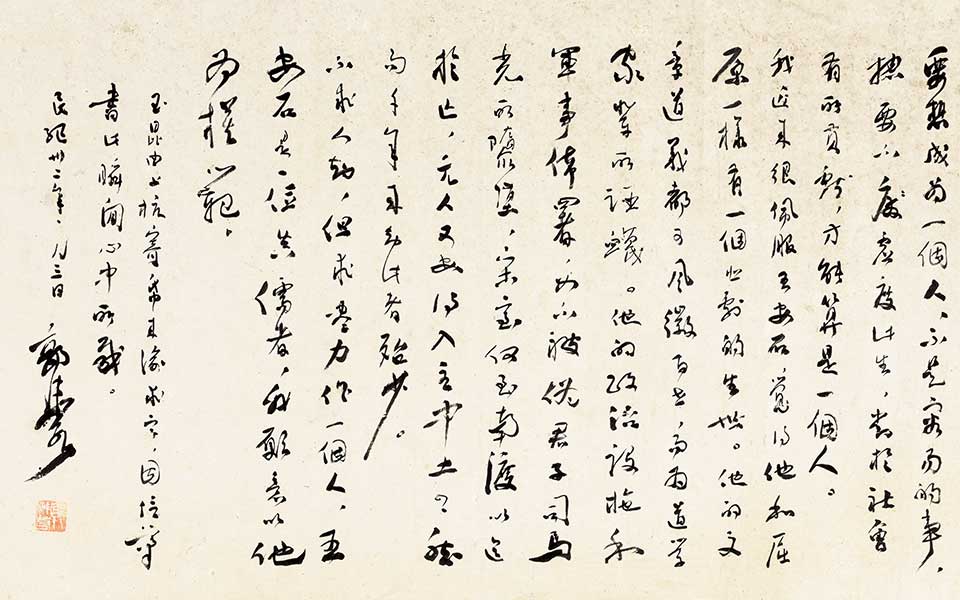 要想成为一個人,不是容易的事,
總要不虛度此生,對於社會
有所貢獻,方能算是一個人。
我近來很佩服王安石,覺得他和屈
原一樣有一個悲劇的生世。他的文
章道義都可風徽百世,而为道学
家輩所誣衊。他的政治設施和
軍事佈署,如不被僞君子司馬
光所隳,宋室何至南渡以迄
於亡,元人又安得入主中土?然
而千年来知此者殆少。
不求人知,但求盡力作一個人,王
安石是一位真儒者,我願意以他
为模範。
玉昆由上杭寄帋来渝求字,因信筆
書此臆間心中所感。
民紀卅二年、月三日 郭沫若